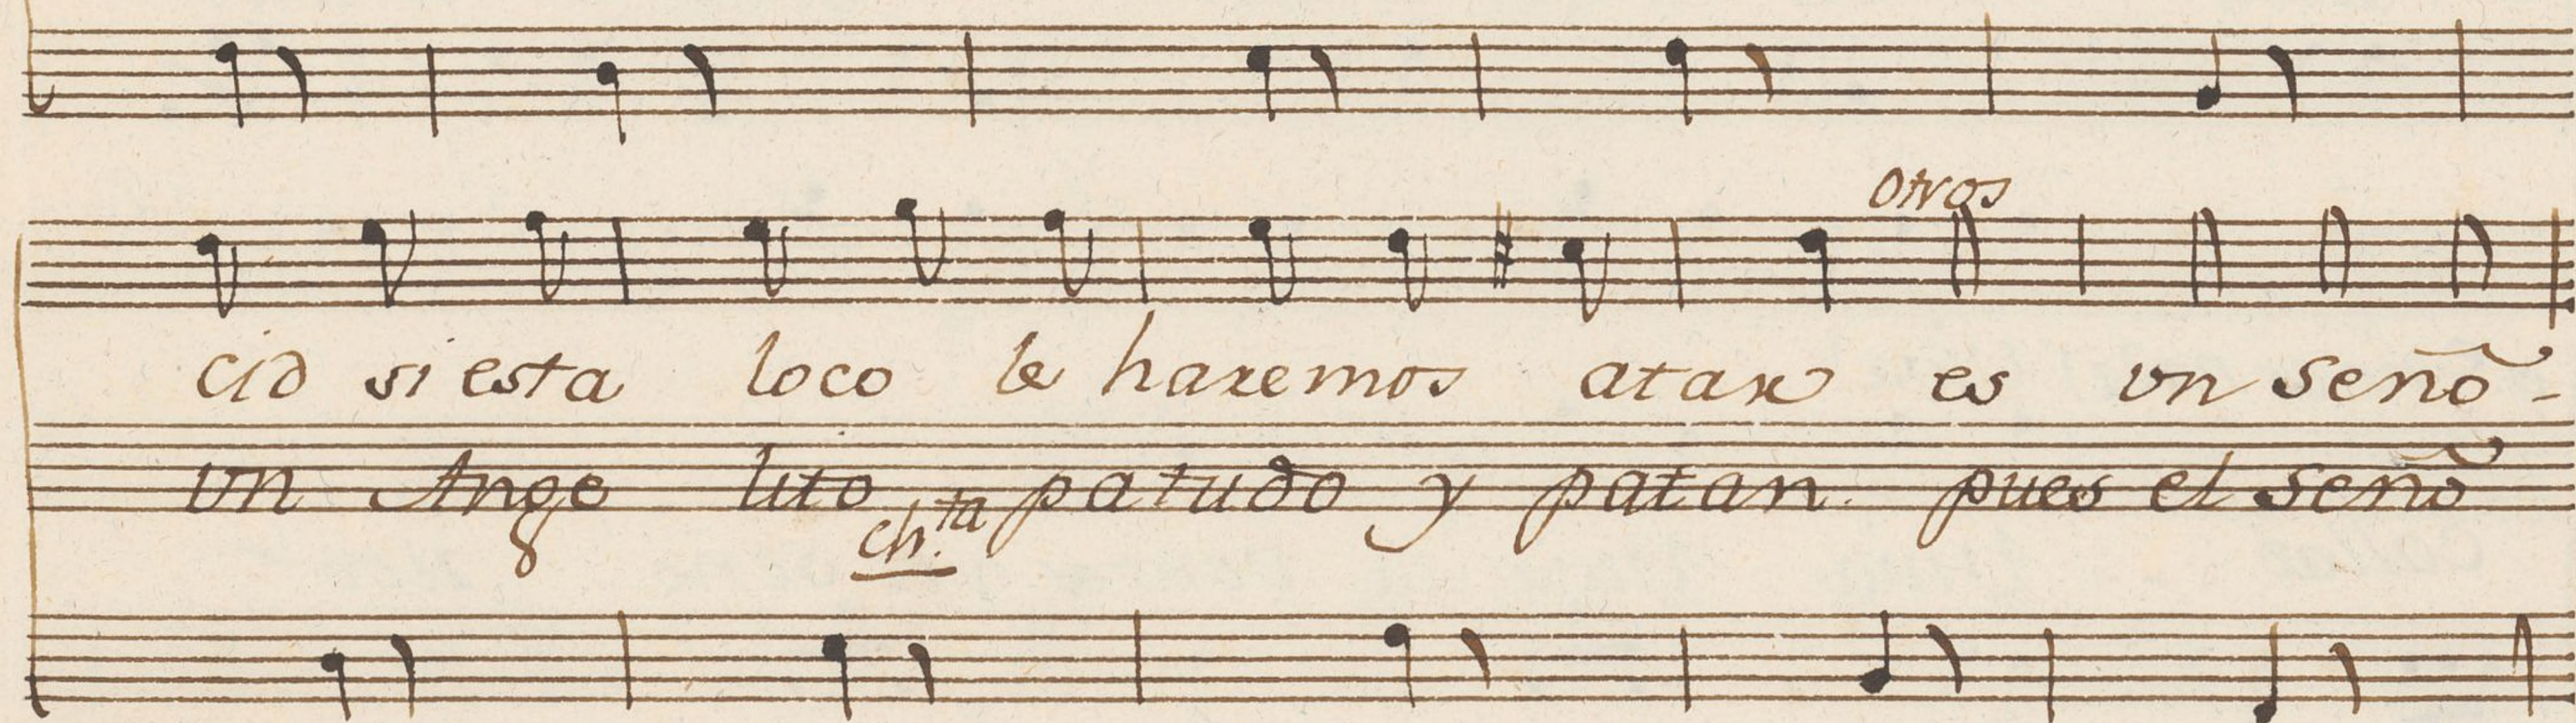 otros
cid si esta loco le haremos atar es vn seño-
vn Angelito patudo y patan. pues el señó
ch.ta